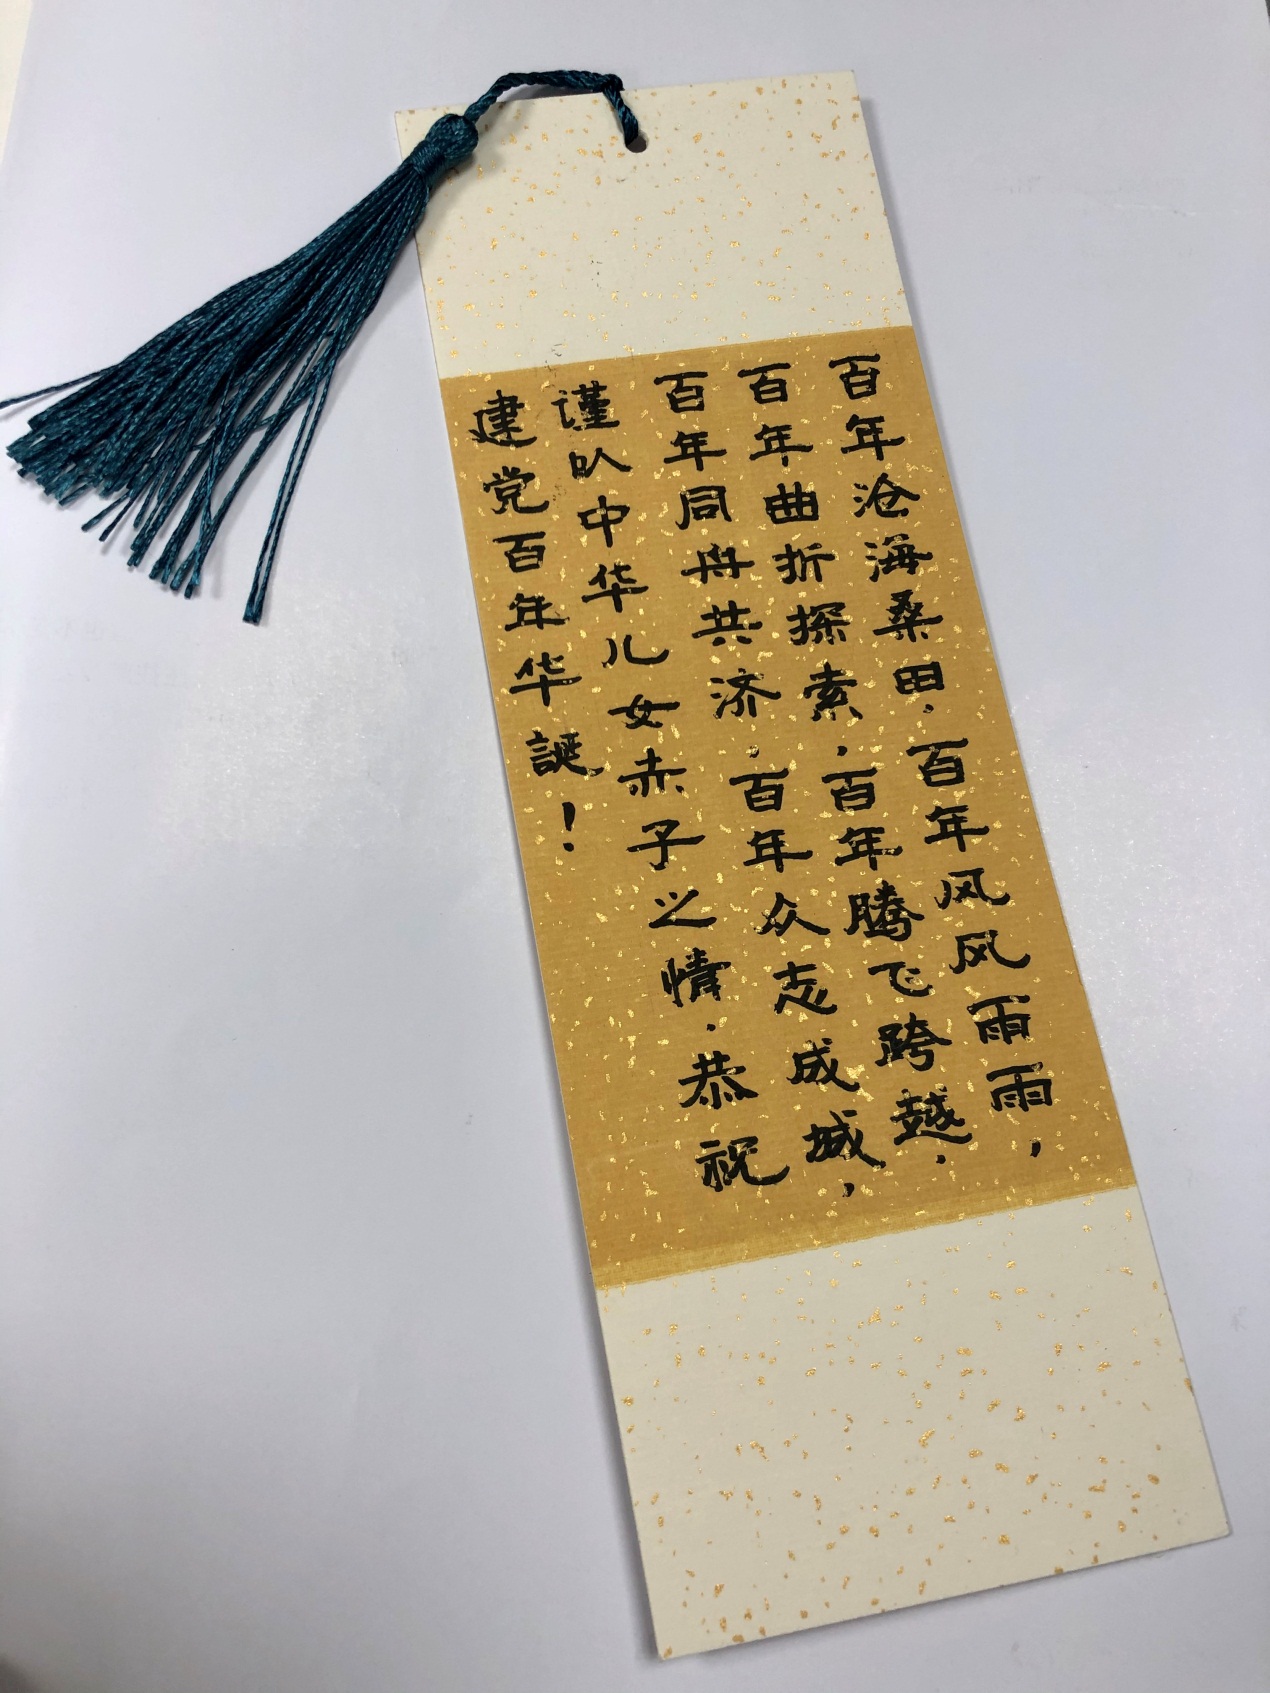 百年沧海桑田，百年风风雨雨，
百年曲折探索，百年腾飞跨越，
百年同舟共济，百年众志成城，
谨以中华儿女赤子之情，恭祝
建党百年华誕！